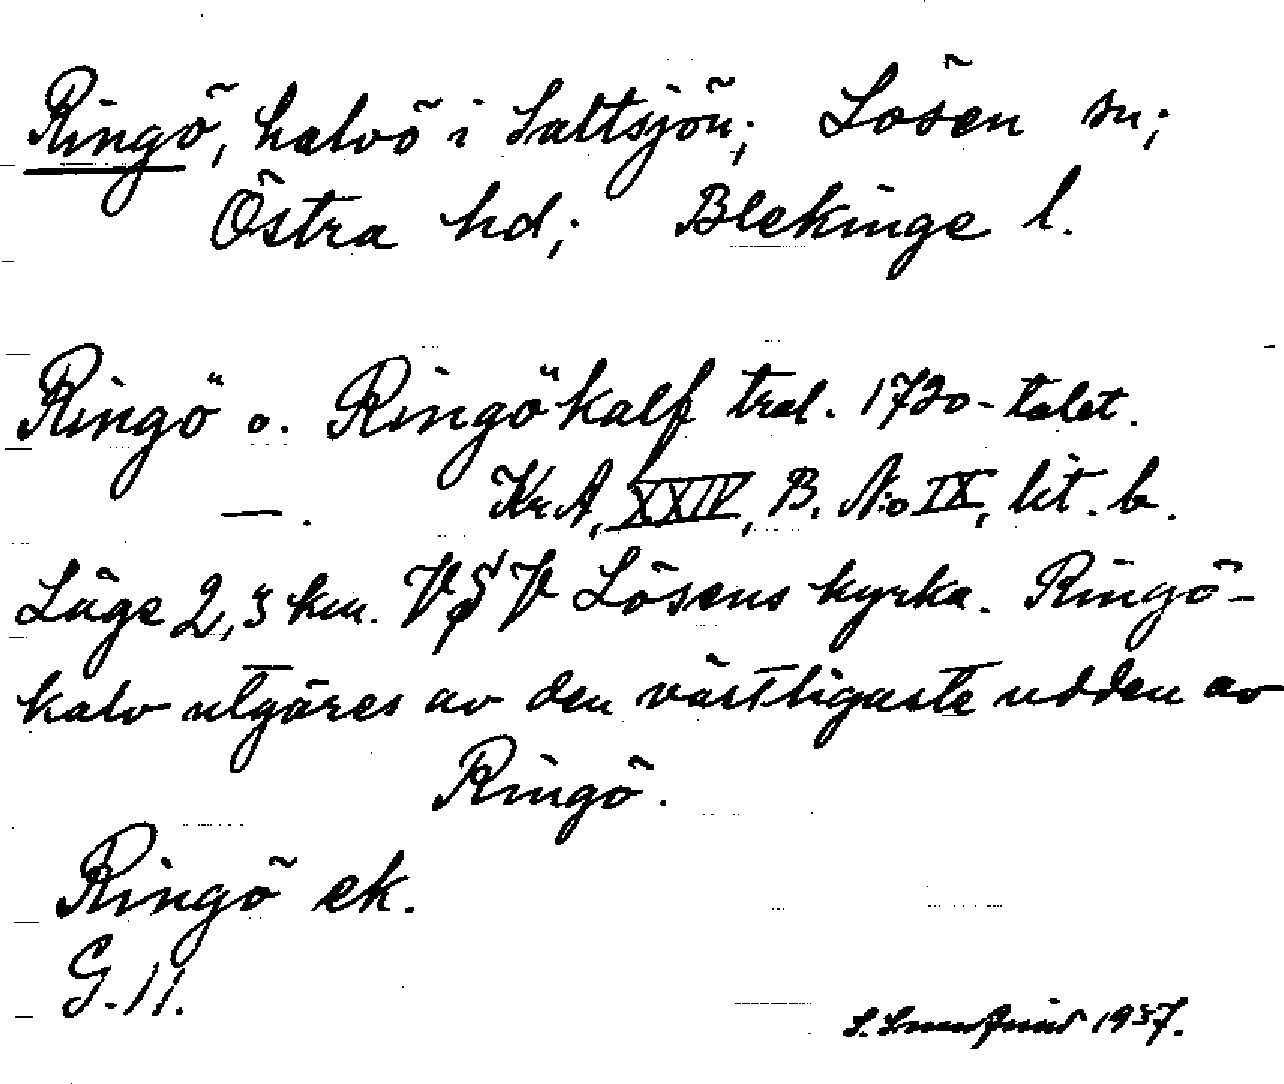 Ringö, halvö i Saltsjön; Lösen sn;
Östra hd; Blekinge l.
Ringö o. Ringökalf trol. 1720-talet.
—. Kr. A, XXIV, B. No IX, lit. b.
Läge 2,3 km. V S V Lösens kyrka. Ringö-
kalv utgöres av den västligaste udden av
Ringö.
Ringö ek.
G. 11.
S. 1937.